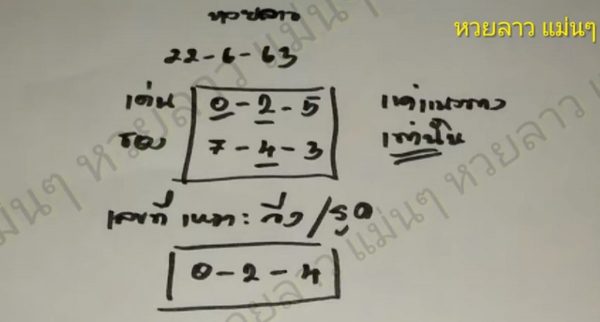 หวยลาว แม่นๆ
หวยลาว
22-6-63
เด่น 0-2-5 แค่แนวทาง
รอง 7-4-3 เท่านั้น
เลขที่ เหมาะ วิ่ง/รูด
0-2-4
หวยลาว แม่นๆ หวยลาว แม่นๆ